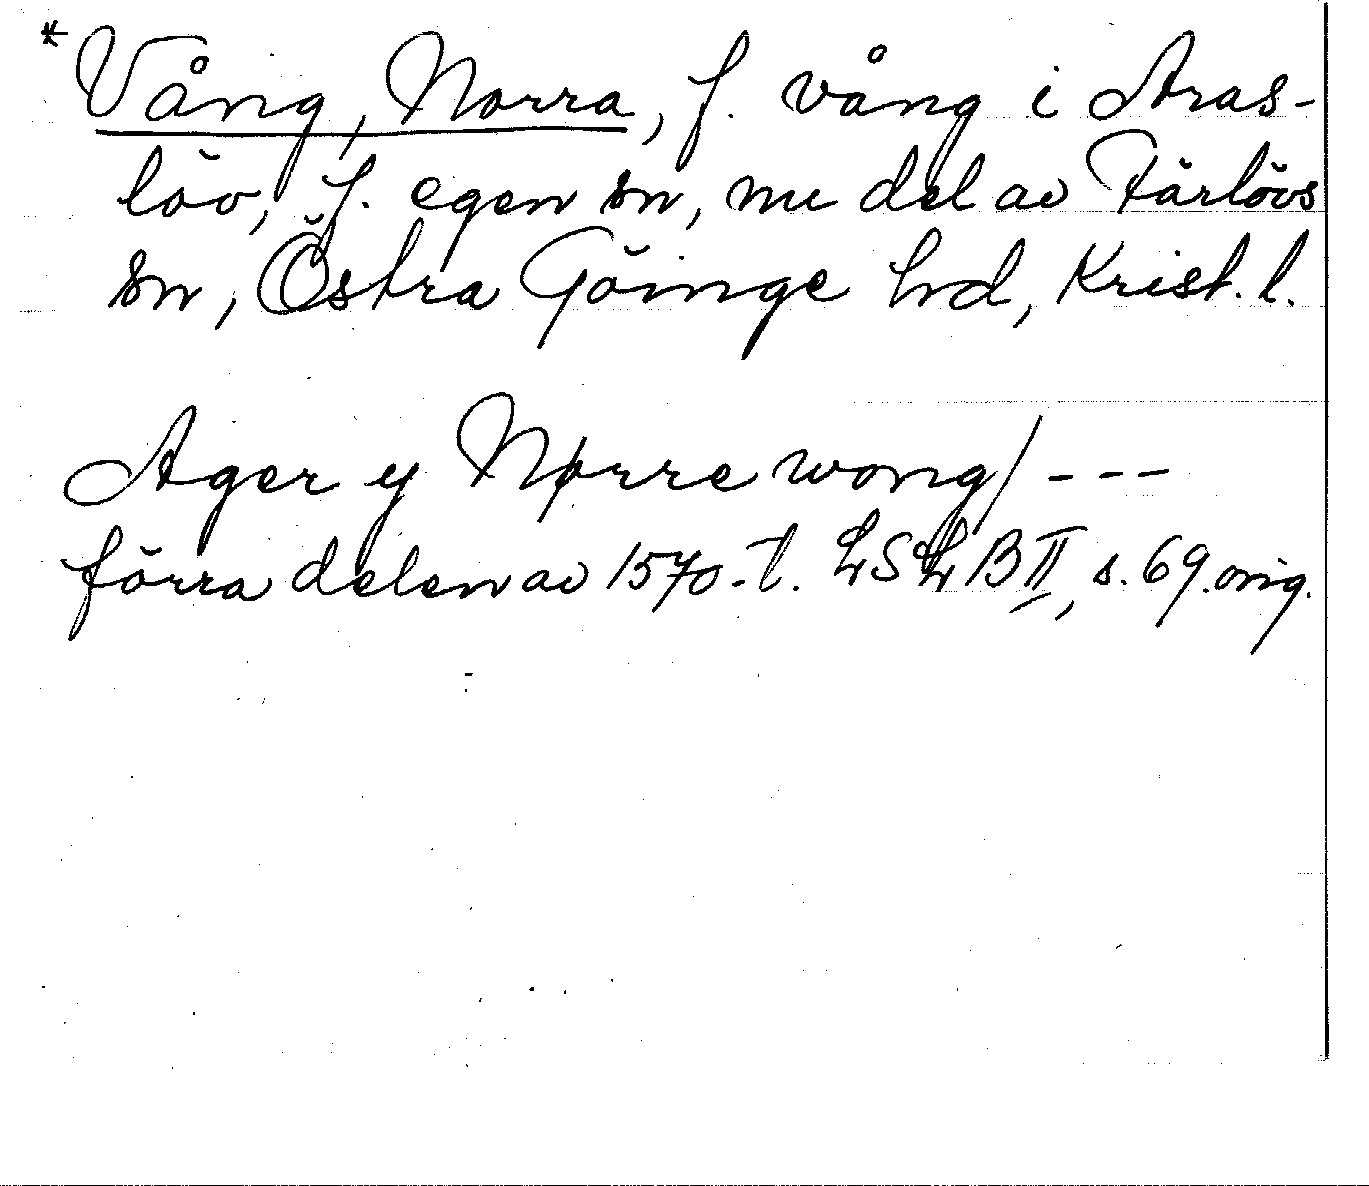 * Vång, Norra, f. vång i Aras-
löv, f. egen sn, nu del av Färlövs
sn, Östra Göinge hd, Krist. l.
Ager y Nørre wong / - - -
förra delen av 1570-t. LSLB II, s. 69. orig.